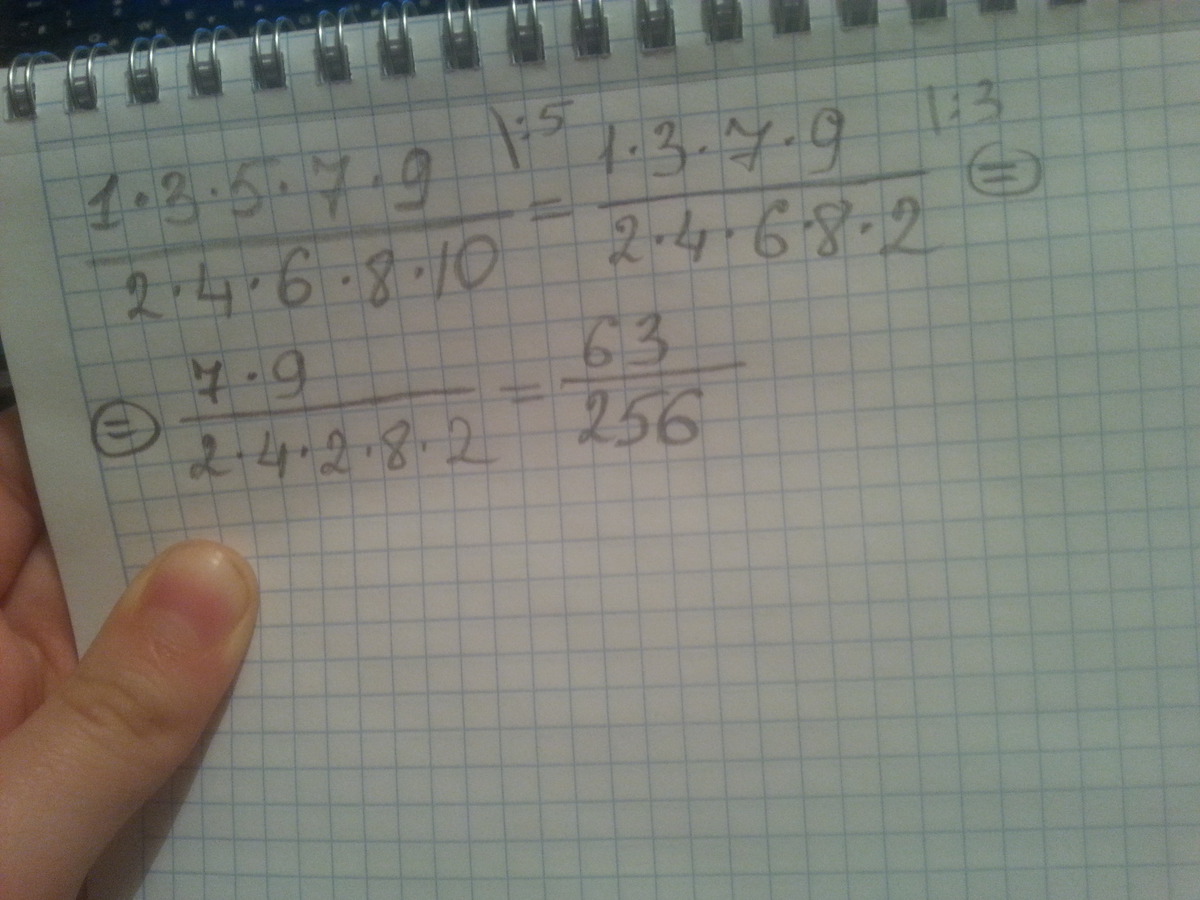 1·3·5·7·9 / 2·4·6·8·10 |:5 = 1·3·7·9 / 2·4·6·8·2 |:3 =
= 7·9 / 2·4·2·8·2 = 63 / 256